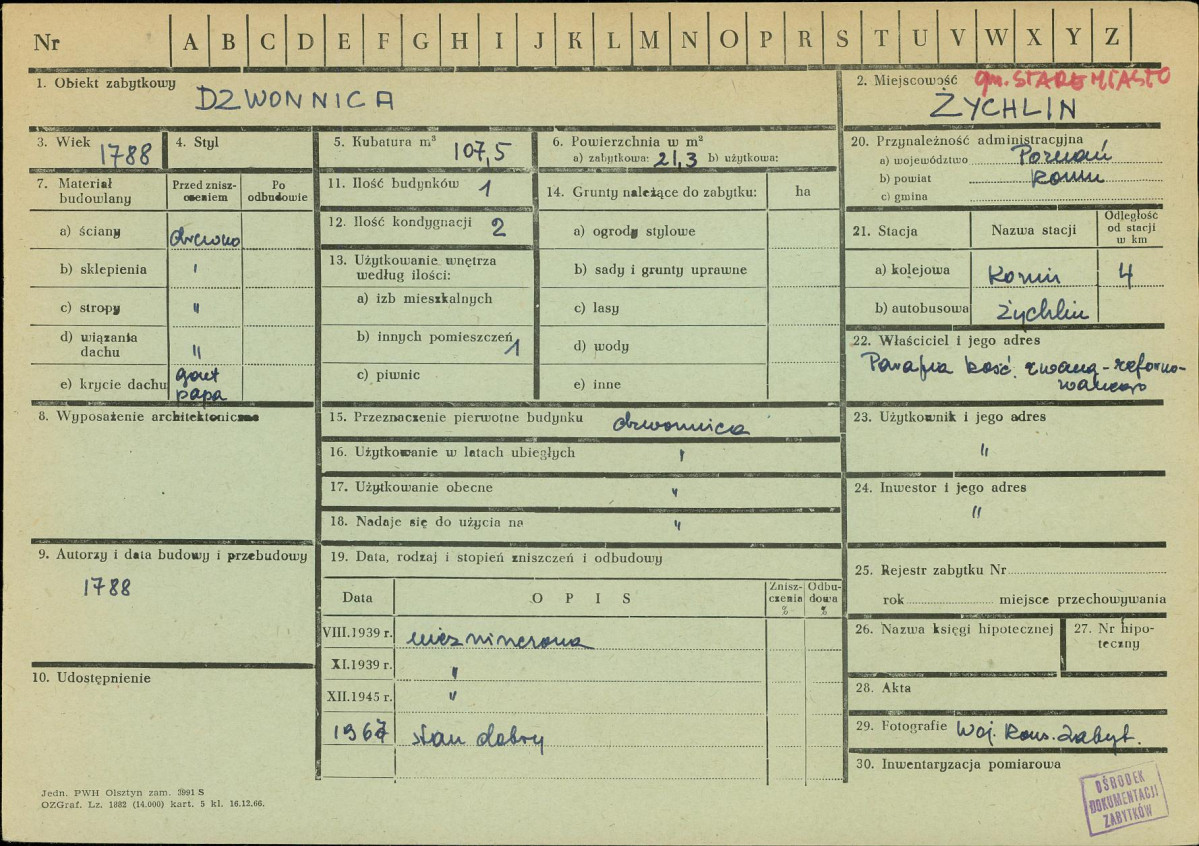 Nr A B C D E F G H I J K L M N O P R S T U V W X Y Z
1. Obiekt zabytkowy
DZWONNICA
2. Miejscowość gm. STARE MIASTO
ŻYCHLIN
3. Wiek 1788
4. Styl
5. Kubatura m³ 107,5
6. Powierzchnia w m²
a) zabytkowa: 21,3 b) użytkowa:
7. Materiał budowlany
Przed zniszczeniem
Po odbudowie
a) ściany drewno
b) sklepienia "
c) stropy "
d) wiązania dachu "
e) krycie dachu gont papa
8. Wyposażenie architektoniczne
9. Autorzy i data budowy i przebudowy
1788
10. Udostępnienie
11. Ilość budynków 1
12. Ilość kondygnacji 2
13. Użytkowanie wnętrza
według ilości:
a) izb mieszkalnych
b) innych pomieszczeń 1
c) piwnic
14. Grunty należące do zabytku: ha
a) ogrody stylowe
b) sady i grunty uprawne
c) lasy
d) wody
e) inne
15. Przeznaczenie pierwotne budynku dzwonnica
16. Użytkowanie w latach ubiegłych "
17. Użytkowanie obecne "
18. Nadaje się do użycia na "
19. Data, rodzaj i stopień zniszczeń i odbudowy
Data O P I S Zniszczenia % Odbudowa %
VIII.1939 r. niezniszczona
XI.1939 r. "
XII.1945 r. "
1967 stan dobry
20. Przynależność administracyjna
a) województwo Poznań
b) powiat Konin
c) gmina
21. Stacja Nazwa stacji Odległość od stacji w km
a) kolejowa Konin 4
b) autobusowa Żychlin
22. Właściciel i jego adres
Parafia kość. ewang-reformo-
wanego
23. Użytkownik i jego adres
"
24. Inwestor i jego adres
"
25. Rejestr zabytku Nr
rok miejsce przechowywania
26. Nazwa księgi hipotecznej
27. Nr hipo-
teczny
28. Akta
29. Fotografie Woj. Kons. Zabyt.
30. Inwentaryzacja pomiarowa
OŚRODEK
DOKUMENTACJI
ZABYTKÓW
Jedn. PWH Olsztyn zam. 3991 S
OZGraf. Lz. 1882 (14.000) kart. 5 kl. 16.12.66.